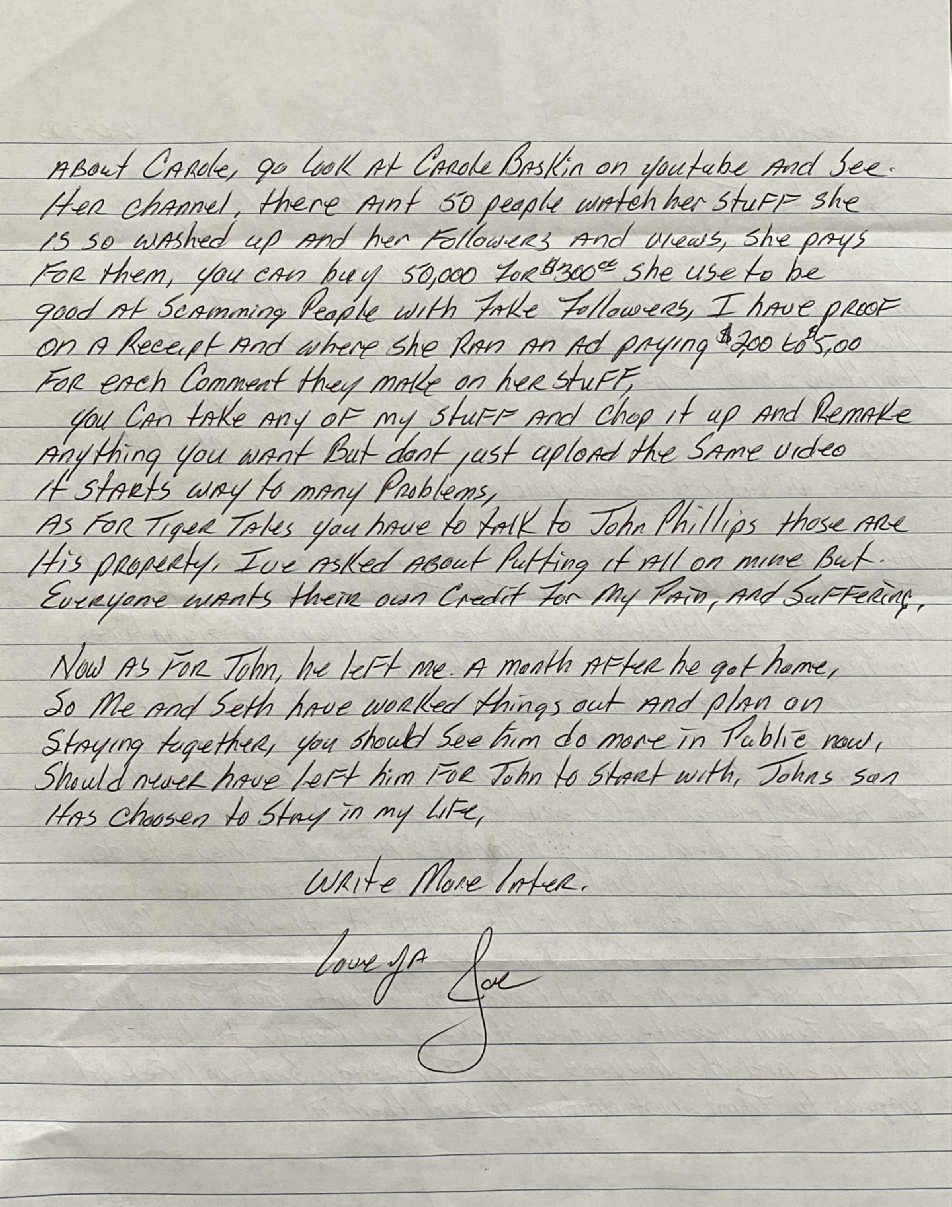 About Carole, go look at Carole Baskin on youtube and see.
Her channel, there aint 50 people watch her stuff she
is so washed up and her followers and views, she pays
for them, you can buy 50,000 for $300.00 she use to be
good at scamming people with fake followers, I have proof
on a receipt and where she ran an ad paying $200 to $5,00
for each comment they make on her stuff,
you can take any of my stuff and chop it up and remake
anything you want but dont just upload the same video
it starts way to many problems,
As for Tiger Tales you have to talk to John Phillips those are
His property. Ive asked about putting it all on mine but.
Everyone wants their own credit for my pain, and suffering,
Now as for John, he left me. A month after he got home,
So me and Seth have worked things out and plan on
staying together, you should see him do more in public now,
Should never have left him for John to start with, Johns son
Has choosen to stay in my life,
Write more later.
love ya Joe